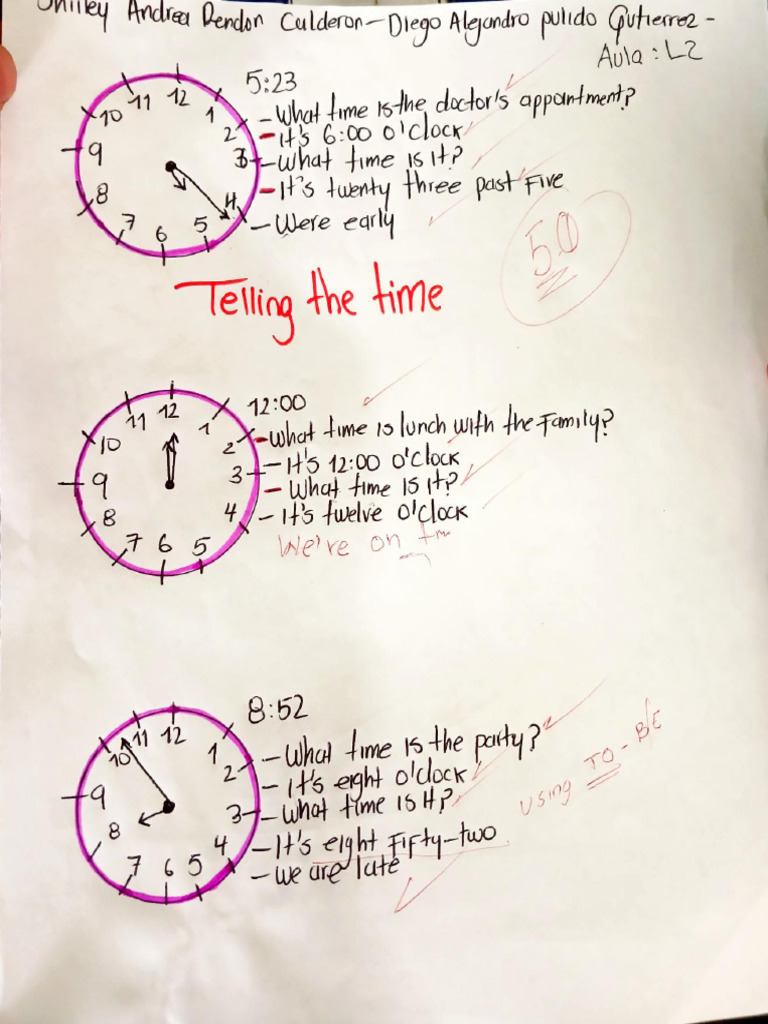 Shirley Andrea Rendon Calderon - Diego Alejandro pulido Gutierrez -
Aula: L2
12
11
1
10
2
9
3
8
4
7
5
6
5:23
- What time is the doctor's appointment?
- It's 6:00 o'clock
- What time is it?
- It's twenty three past Five
- Were early
50
Telling the time
12
11
1
10
2
9
3
8
4
7
5
6
12:00
- What time is lunch with the Family?
- It's 12:00 o'clock
- What time is it?
- It's twelve o'clock
We're on
12
11
1
10
2
9
3
8
4
7
5
6
8:52
- What time is the party?
- It's eight o'clock
- What time is it?
- It's eight Fifty-two
- we are late
using TO-BE